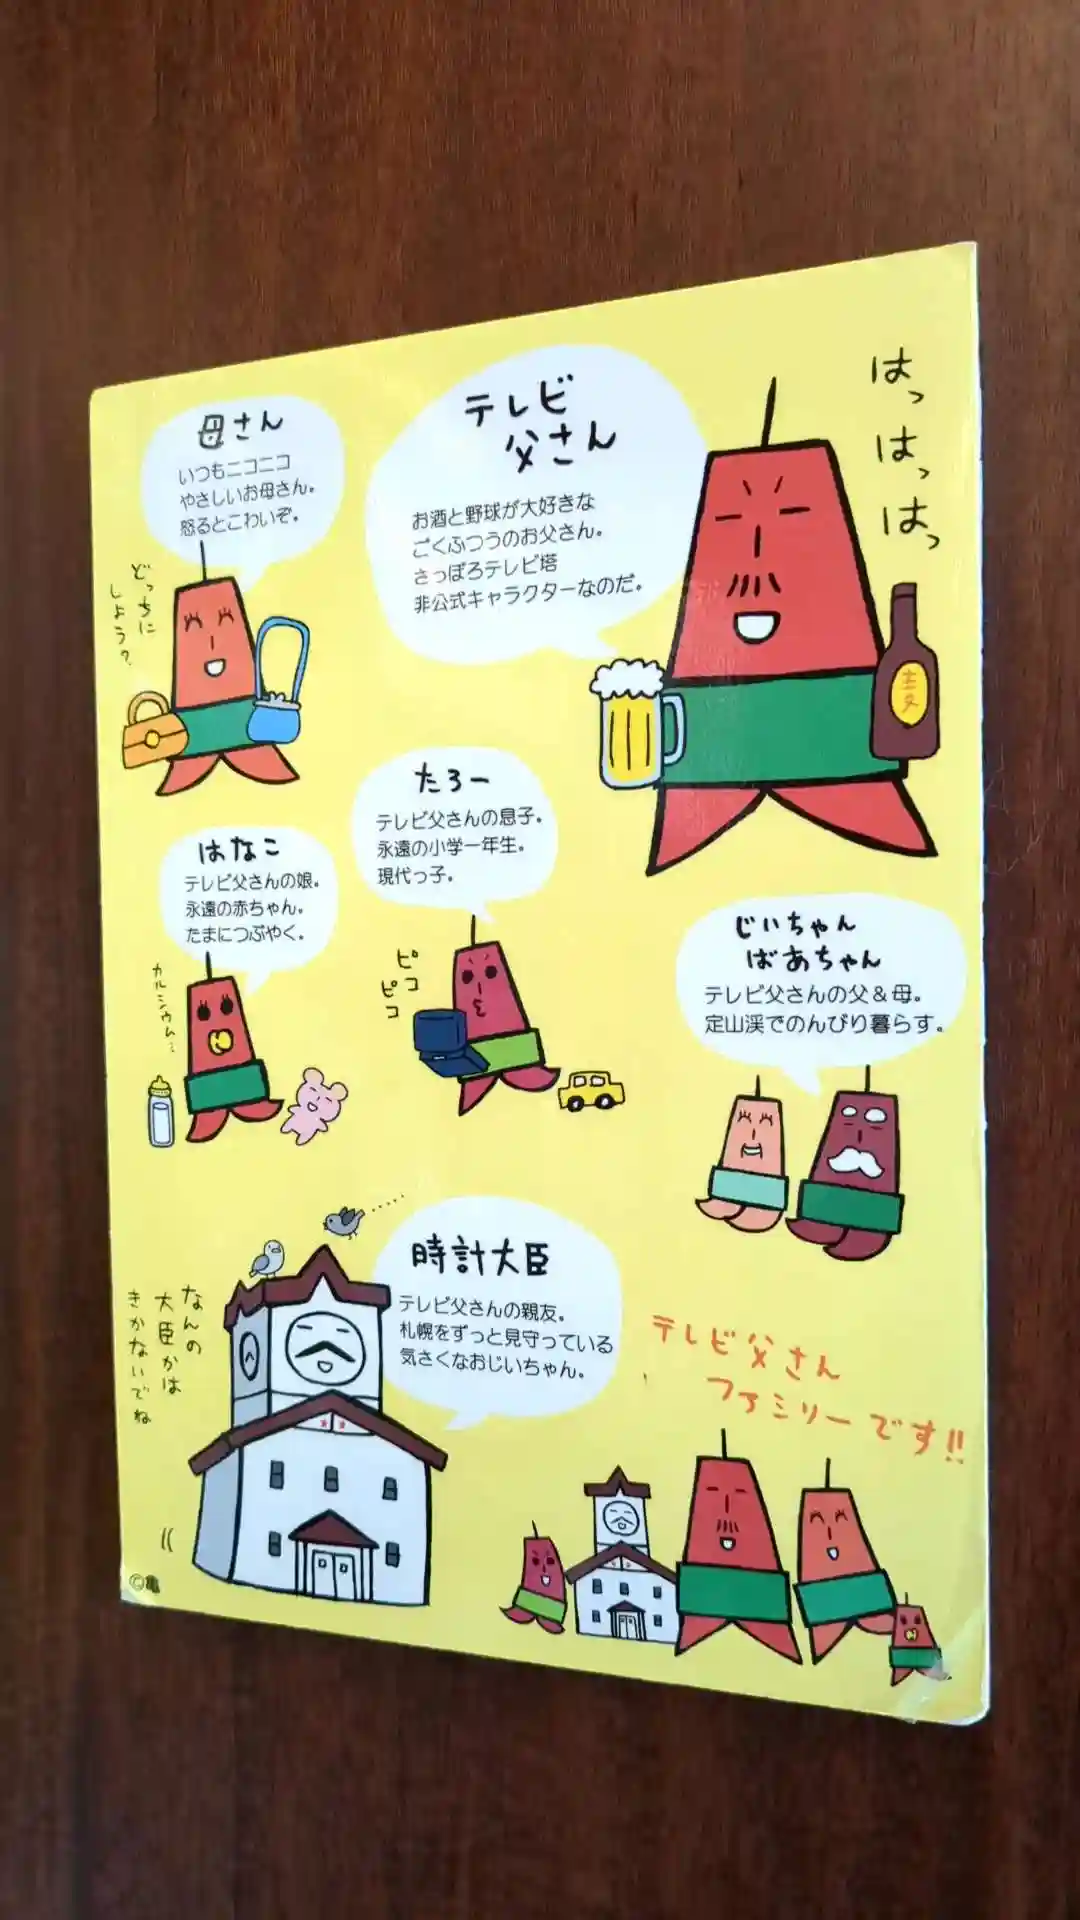 母さん
いつもニコニコ
やさしいお母さん。
怒るとこわいぞ。
どっちに
しよう?
テレビ
父さん
お酒と野球が大好きな
ごくふつうのお父さん。
さっぽろテレビ塔
非公式キャラクターなのだ。
はっ
はっ
はっ
麦
たろー
テレビ父さんの息子。
永遠の小学一年生。
現代っ子。
ピコ
ピコ
はなこ
テレビ父さんの娘。
永遠の赤ちゃん。
たまにつぶやく。
カルシウム…
じいちゃん
ばあちゃん
テレビ父さんの父&母。
定山渓でのんびり暮らす。
時計大臣
テレビ父さんの親友。
札幌をずっと見守っている
気さくなおじいちゃん。
なんの
大臣かは
きかないでね
テレビ父さん
ファミリーです!!
©亀